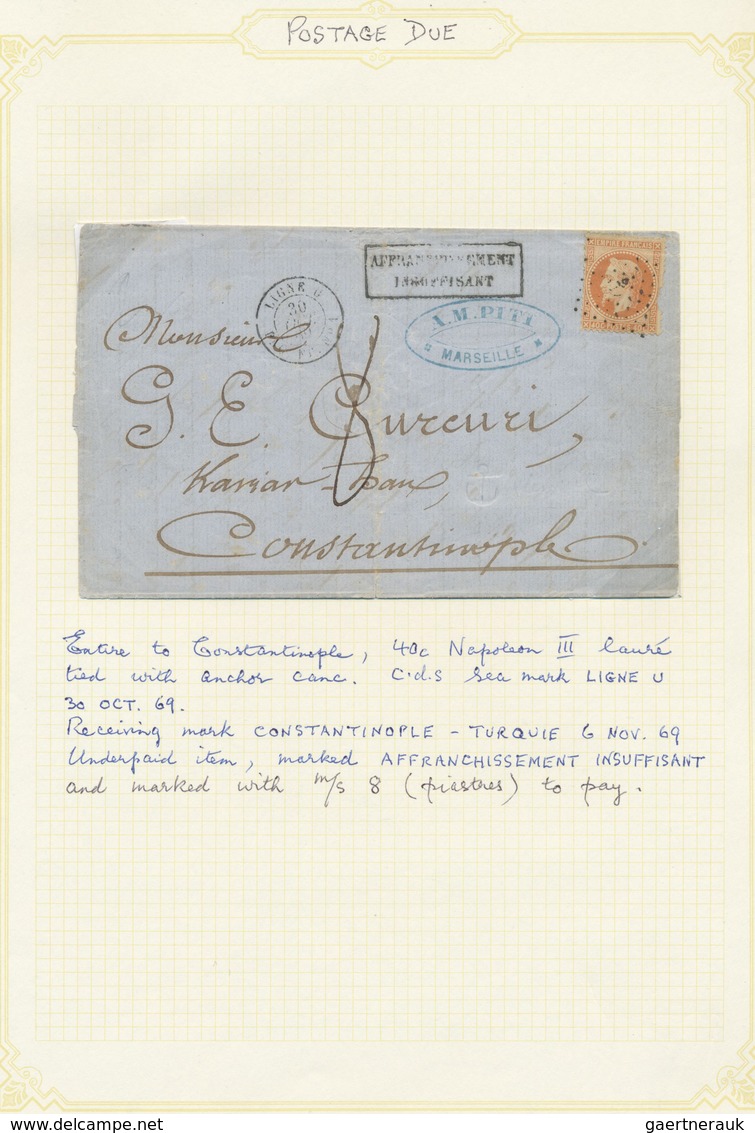 POSTAGE DUE
AFFRANCHISSEMENT
INSUFFISANT
EMPIRE FRANÇAIS
LIGNE
30
A.M. PITI
MARSEILLE
Monsieur
G. E. Curcuri,
Kaviar-han,
8
Constantinople.
Entire to Constantinople, 40c Napoleon III lauré
tied with anchor canc. c.d.s sea mark LIGNE U
30 OCT. 69.
Receiving mark CONSTANTINOPLE - TURQUIE 6 NOV. 69
Underpaid item, marked AFFRANCHISSEMENT INSUFFISANT
and marked with m/s 8 (piastres) to pay.
gaertnerauk